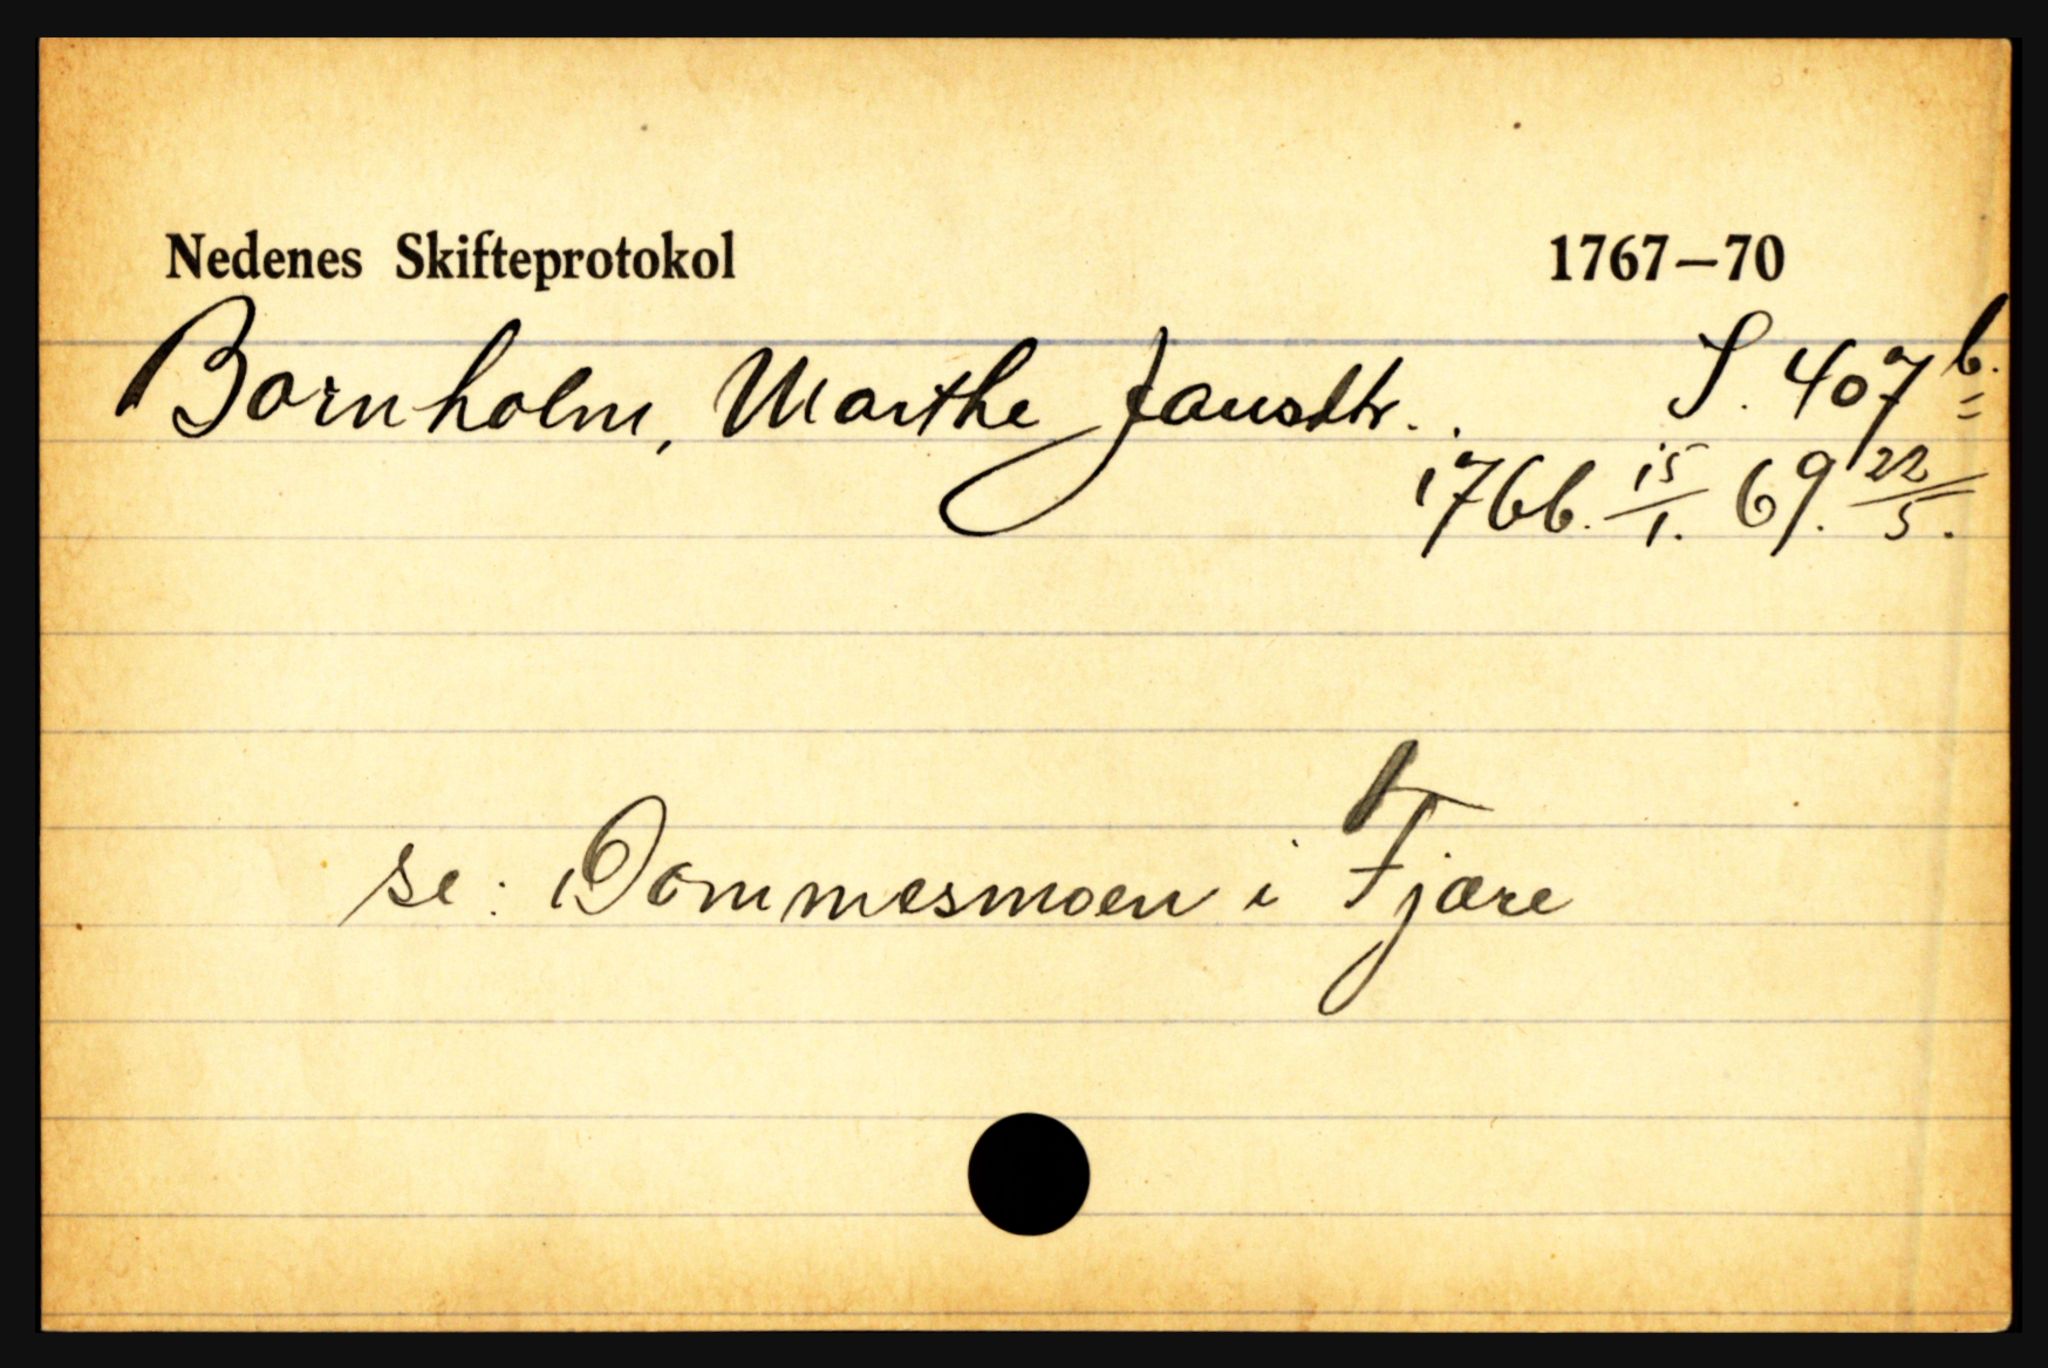 Nedenes Skifteprotokol 1767–70
Bornholm, Marthe Jansdtr. S. 407 b.
1766. 15/1. 69. 22/5.
se: Dømmesmoen i Fjære